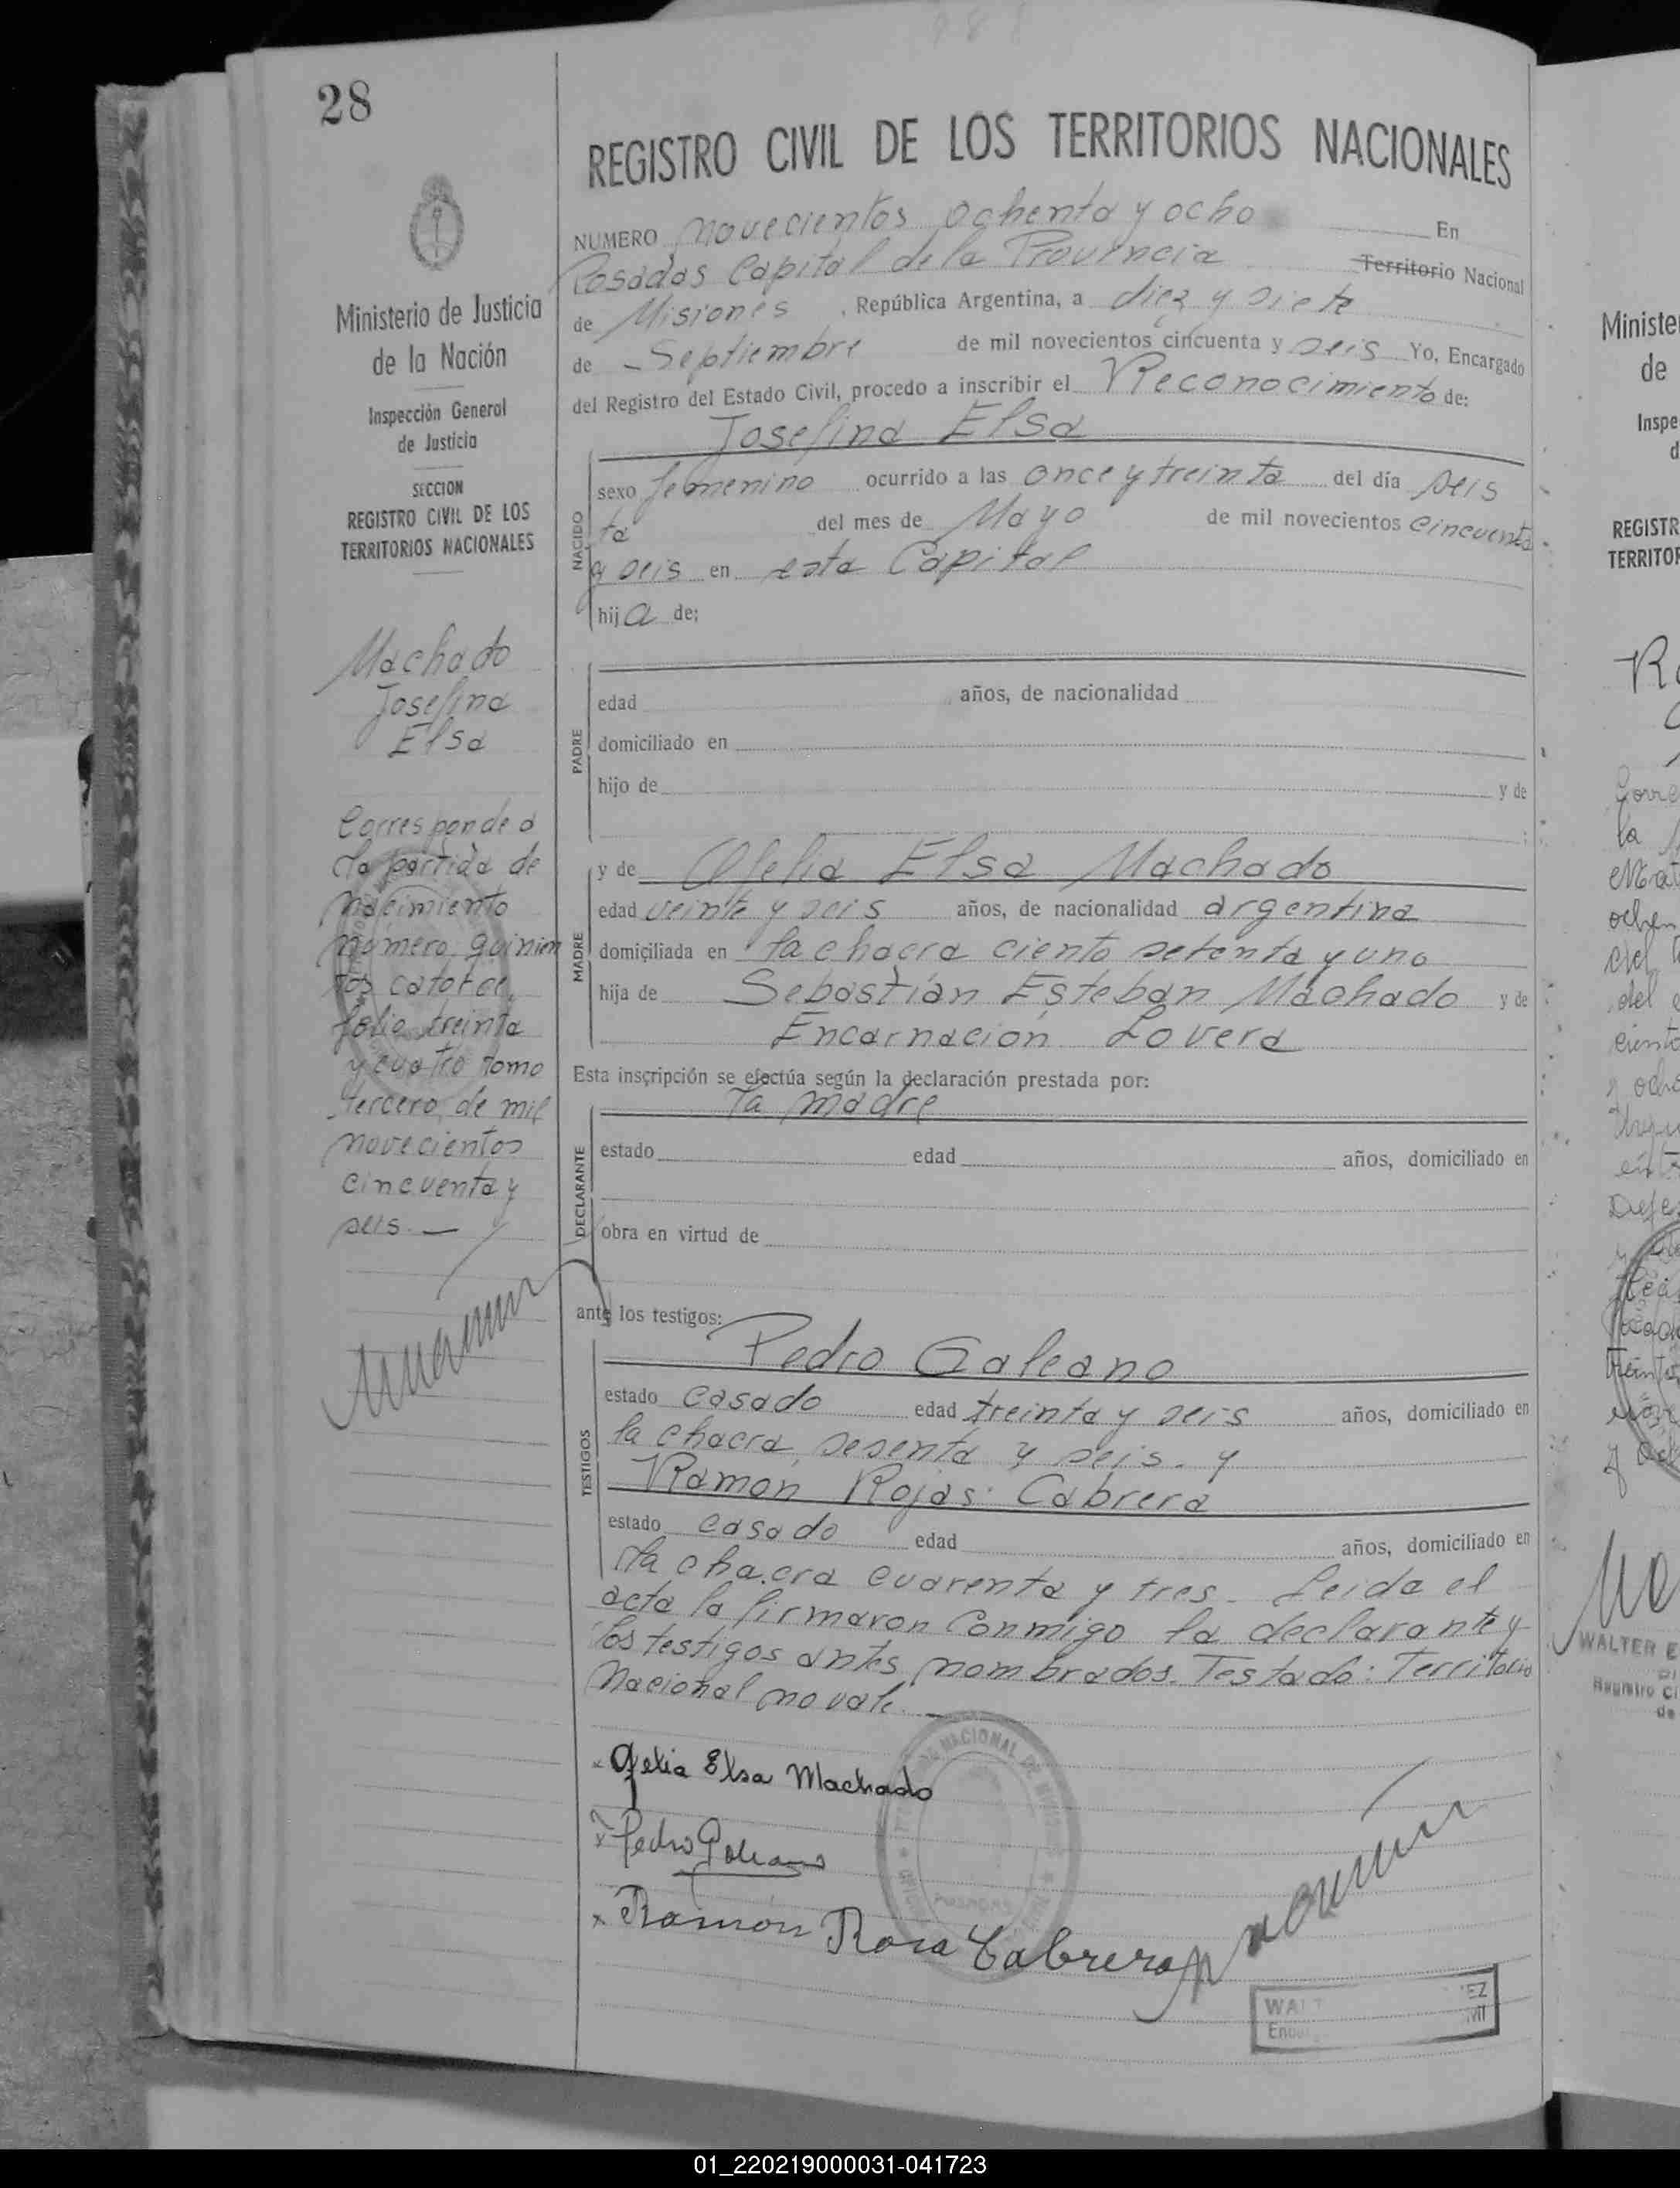 28
Ministerio de Justicia
de la Nación
Inspección General
de Justicia
SECCION
REGISTRO CIVIL DE LOS
TERRITORIOS NACIONALES
Machado
Josefina
Elsa
Corresponde a
la partida de
nacimiento
número quinien
tos catorce,
folio treinta
y cuatro tomo
tercero, de mil
novecientos
cincuenta y
seis. —
REGISTRO CIVIL DE LOS TERRITORIOS NACIONALES
NUMERO novecientos ochenta y ocho En
Posadas Capital de la Provincia Territorio Nacional
de Misiones, República Argentina, a diez y siete
de Septiembre de mil novecientos cincuenta y seis Yo, Encargado
del Registro del Estado Civil, procedo a inscribir el Reconocimiento de:
Josefina Elsa
NACIDO
sexo femenino ocurrido a las once y treinta del día seis
del mes de Mayo de mil novecientos cincuenta
y seis en esta Capital
hija de;
PADRE
edad años, de nacionalidad
domiciliado en
hijo de y de
MADRE
y de Ofelia Elsa Machado
edad veinte y seis años, de nacionalidad argentina
domiciliada en la chacra ciento setenta y uno
hija de Sebastián Esteban Machado y de
Encarnación Lovera
Esta inscripción se efectúa según la declaración prestada por:
la madre
DECLARANTE
estado edad años, domiciliado en
obra en virtud de
ante los testigos:
TESTIGOS
Pedro Galeano
estado casado edad treinta y seis años, domiciliado en
la chacra sesenta y seis. y
Ramon Rojas Cabrera
estado casado edad años, domiciliado en
la chacra cuarenta y tres. Leida el
acta la firmaron conmigo la declarante y
los testigos antes nombrados. Testado: Territorio
Nacional no vale. —
Ofelia Elsa Machado
Pedro Galeano
Ramón Rosa Cabrera
NACIONAL DE
POSADAS
Ministe
de
Inspe
d
REGISTR
TERRITOR
WALTER E
Registro Ci
de
01_220219000031-041723